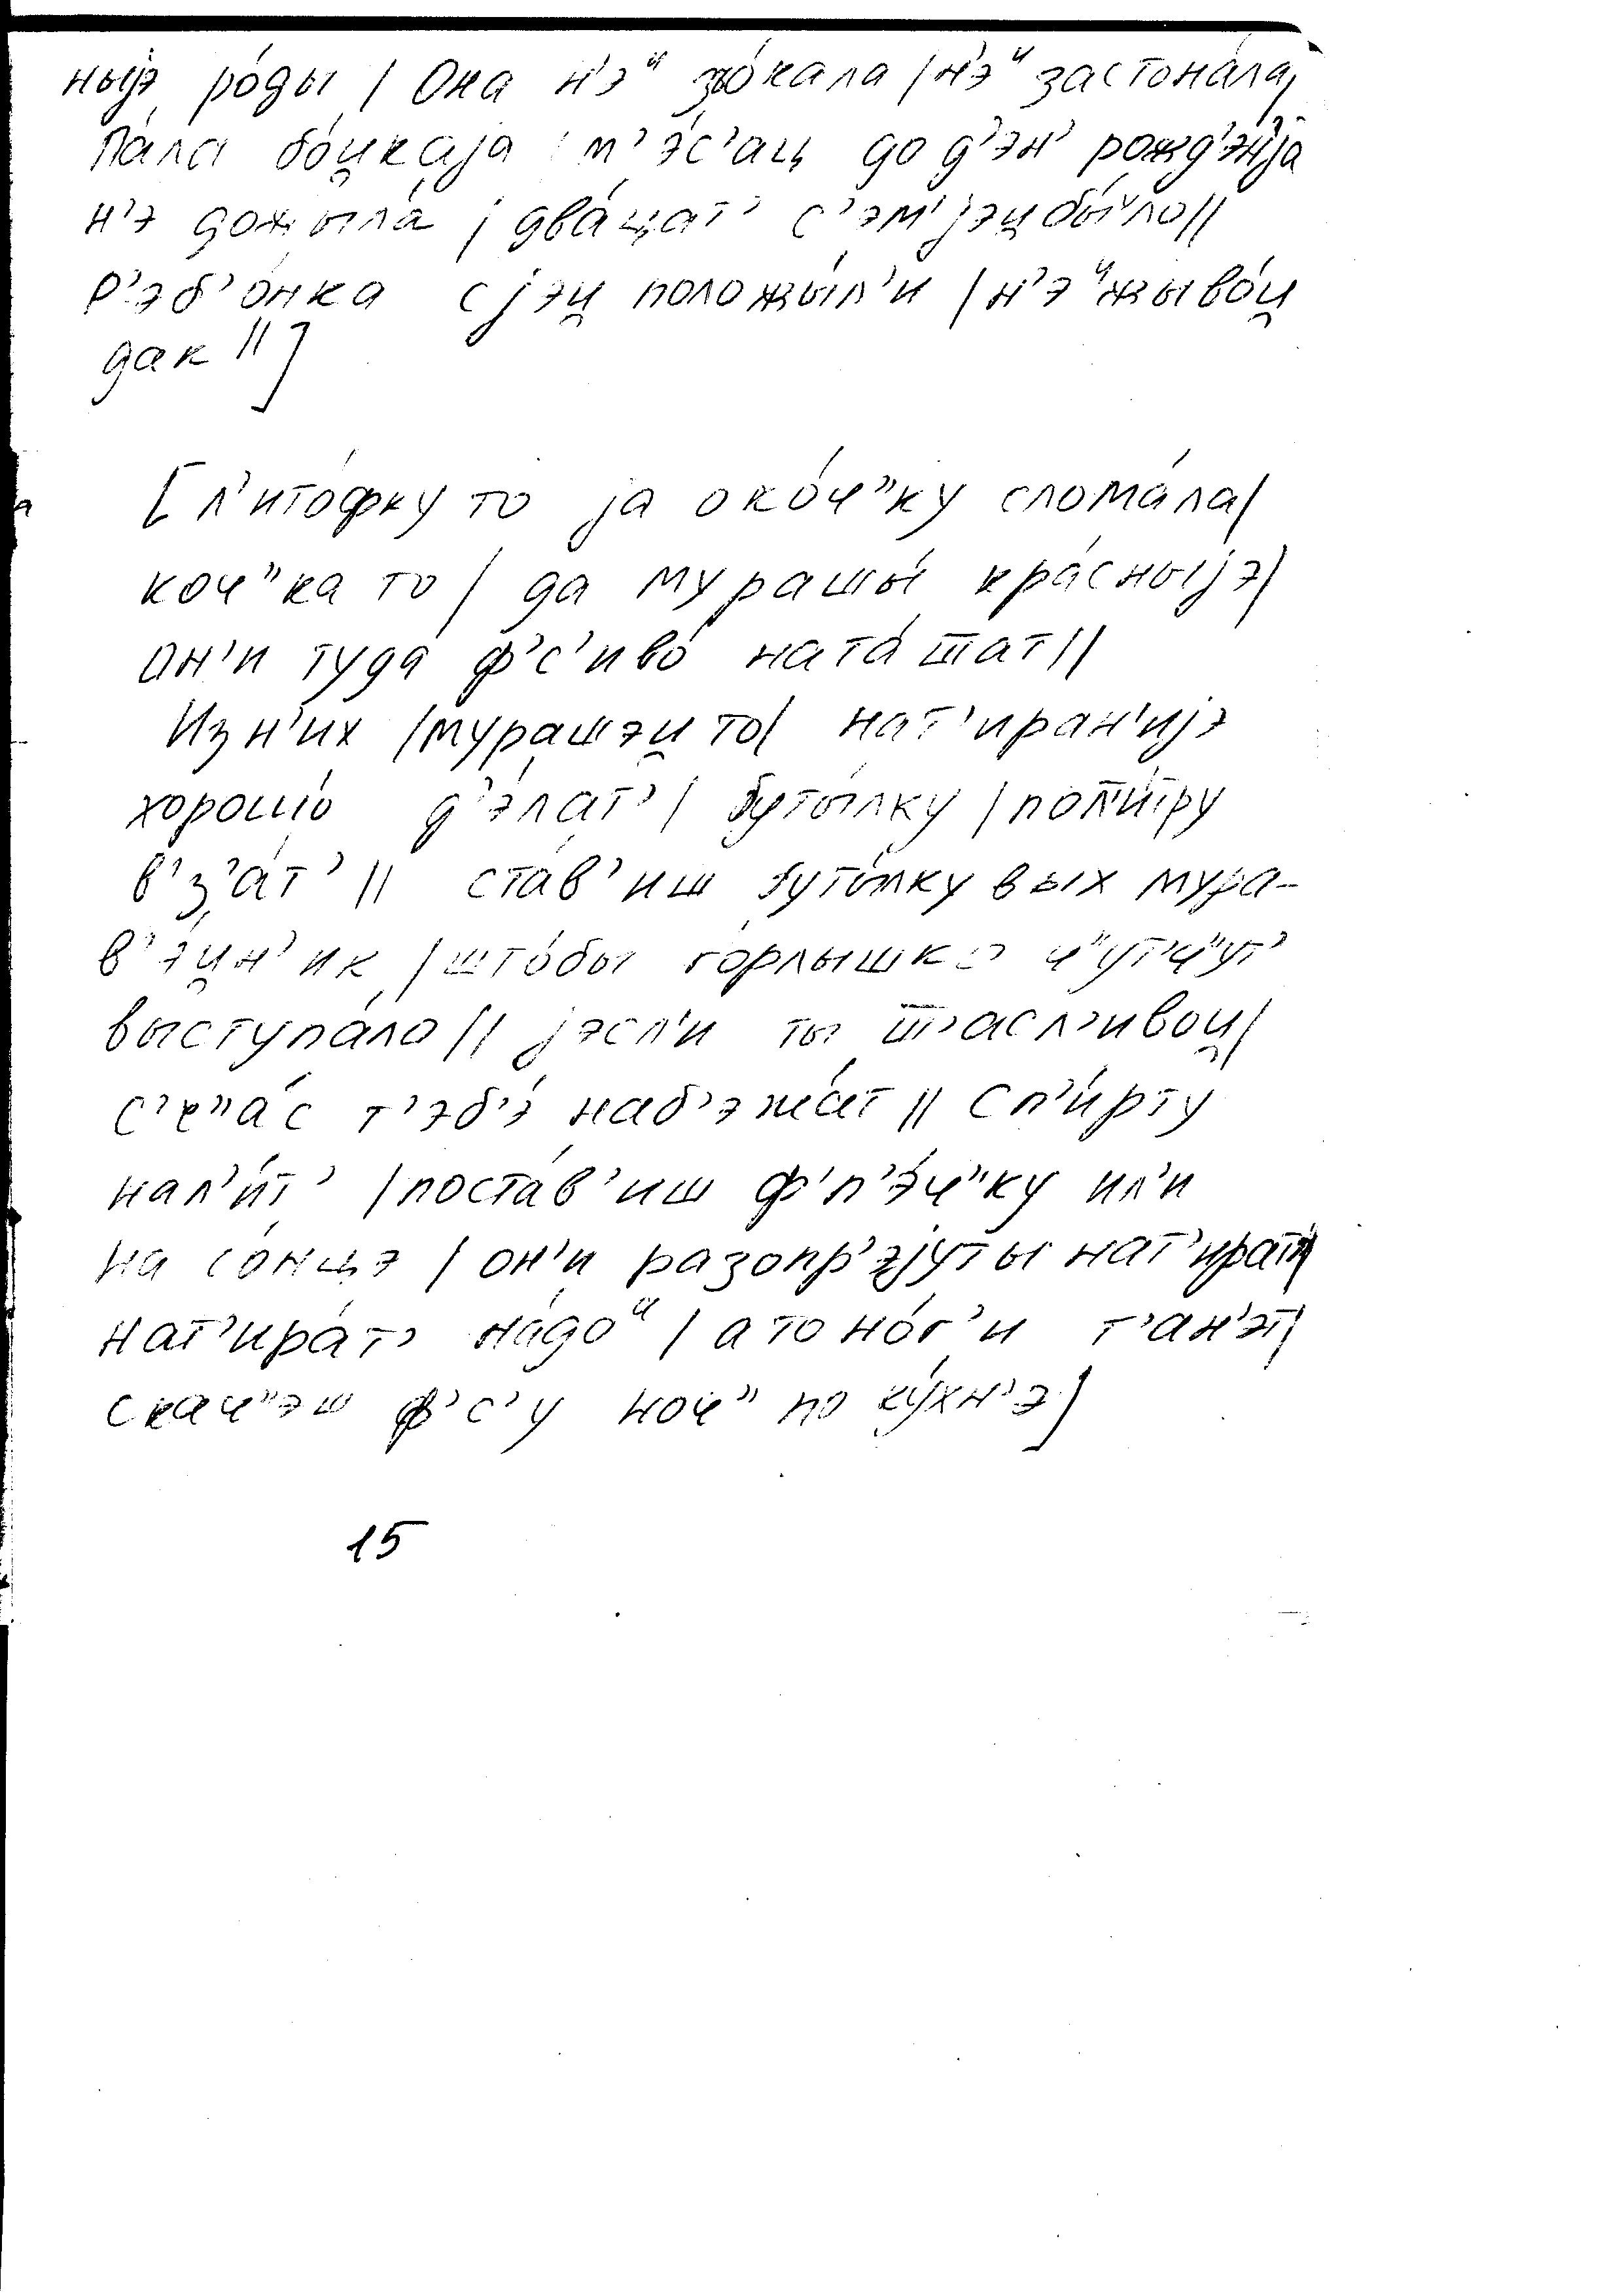 ныjэ ро́ды | Она н'эи зо́кала | н'эи застона́ла|
па́ла бо́и̯каjа | м'э́с'ац до д'эн' рожд'э́н'jа
н'э дожыла́ | два́цат' с'эм' jэи̯ бы́ло ||
р'эб'о́нка с jэи̯ положы́л'и | н'эи жыво́и̯
дак || ]
[ л'ито́фку то jа око́ч"ку слома́ла |
коч"ка то | да мурашы́ кра́сныjэ |
он'и туда́ ф'с'иво́ ната́ш̅ат ||
Из н'их | мурашэи̯ то | нат'иран'иjэ
хорошо́ д'э́лат' | буты́лку | пол'и́тру
в'з'а́т' || ста́в'иш буты́лку в ых мура-
в'э́и̯н'ик | што́бы го́рлышко ч"ут'ч"ут'
выступа́ло || jэсл'и ты ш̅'асл'ивои̯ |
с'ч"а́с т'эб'э́ наб'эжа́т || Сп'и́рту
нал'и́т' | поста́в'иш ф'п'э́ч"ку ил'и
на со́нцэ | он'и разопр'э́jут ы нат'ират' |
нат'ира́т' на́дои | а то но́г'и т'ан'эт |
скач"эш ф'с'у ноч" по ку́хн'э ]
15